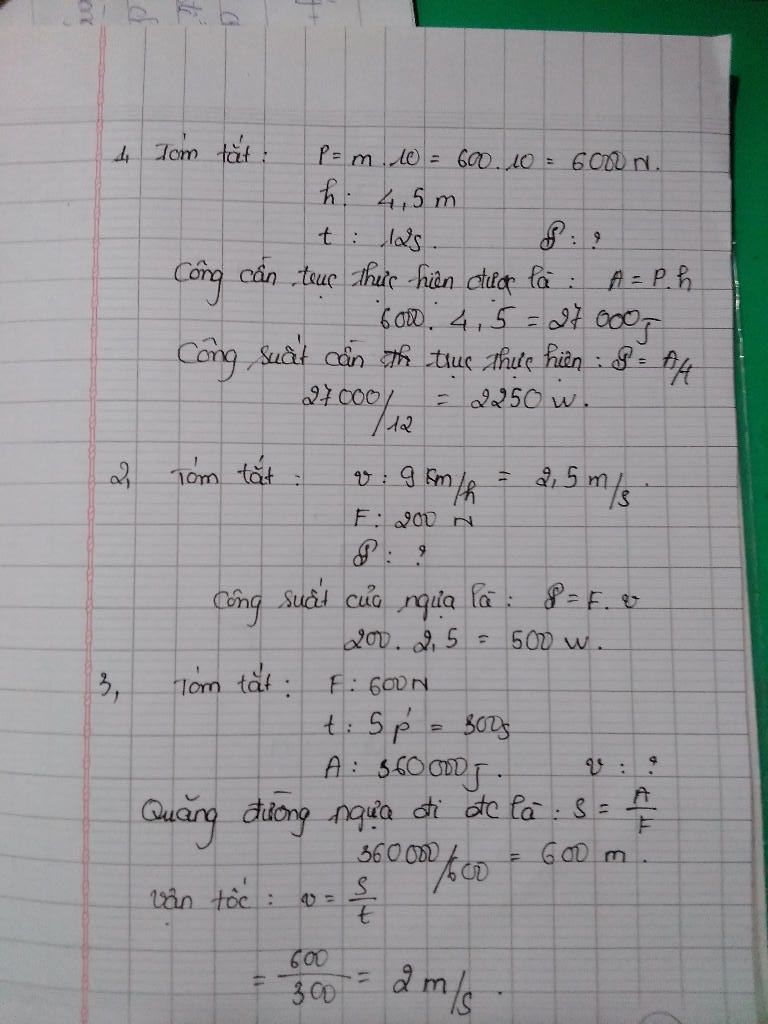 1, Tóm tắt : P = m . 10 = 600 . 10 = 6000 N.
h : 4,5 m
t : 12s. 𝒫 : ?
Công cần trục thực hiện được là : A = P.h
6000 . 4,5 = 27 000J
Công suất cần th trục thực hiện : 𝒫 = A/t
27000/12 = 2250 w.
2, Tóm tắt : v : 9 Km/h = 2,5 m/s.
F : 200 N
𝒫 : ?
Công suất của ngựa là : 𝒫 = F. v
200 . 2,5 = 500 w.
3, Tóm tắt : F : 600N
t : 5 p' = 300s
A : 360000J. v : ?
Quãng đường ngựa đi đc là : S = A/F
360000/600 = 600 m.
Vận tốc : v = S/t
= 600/300 = 2 m/s.